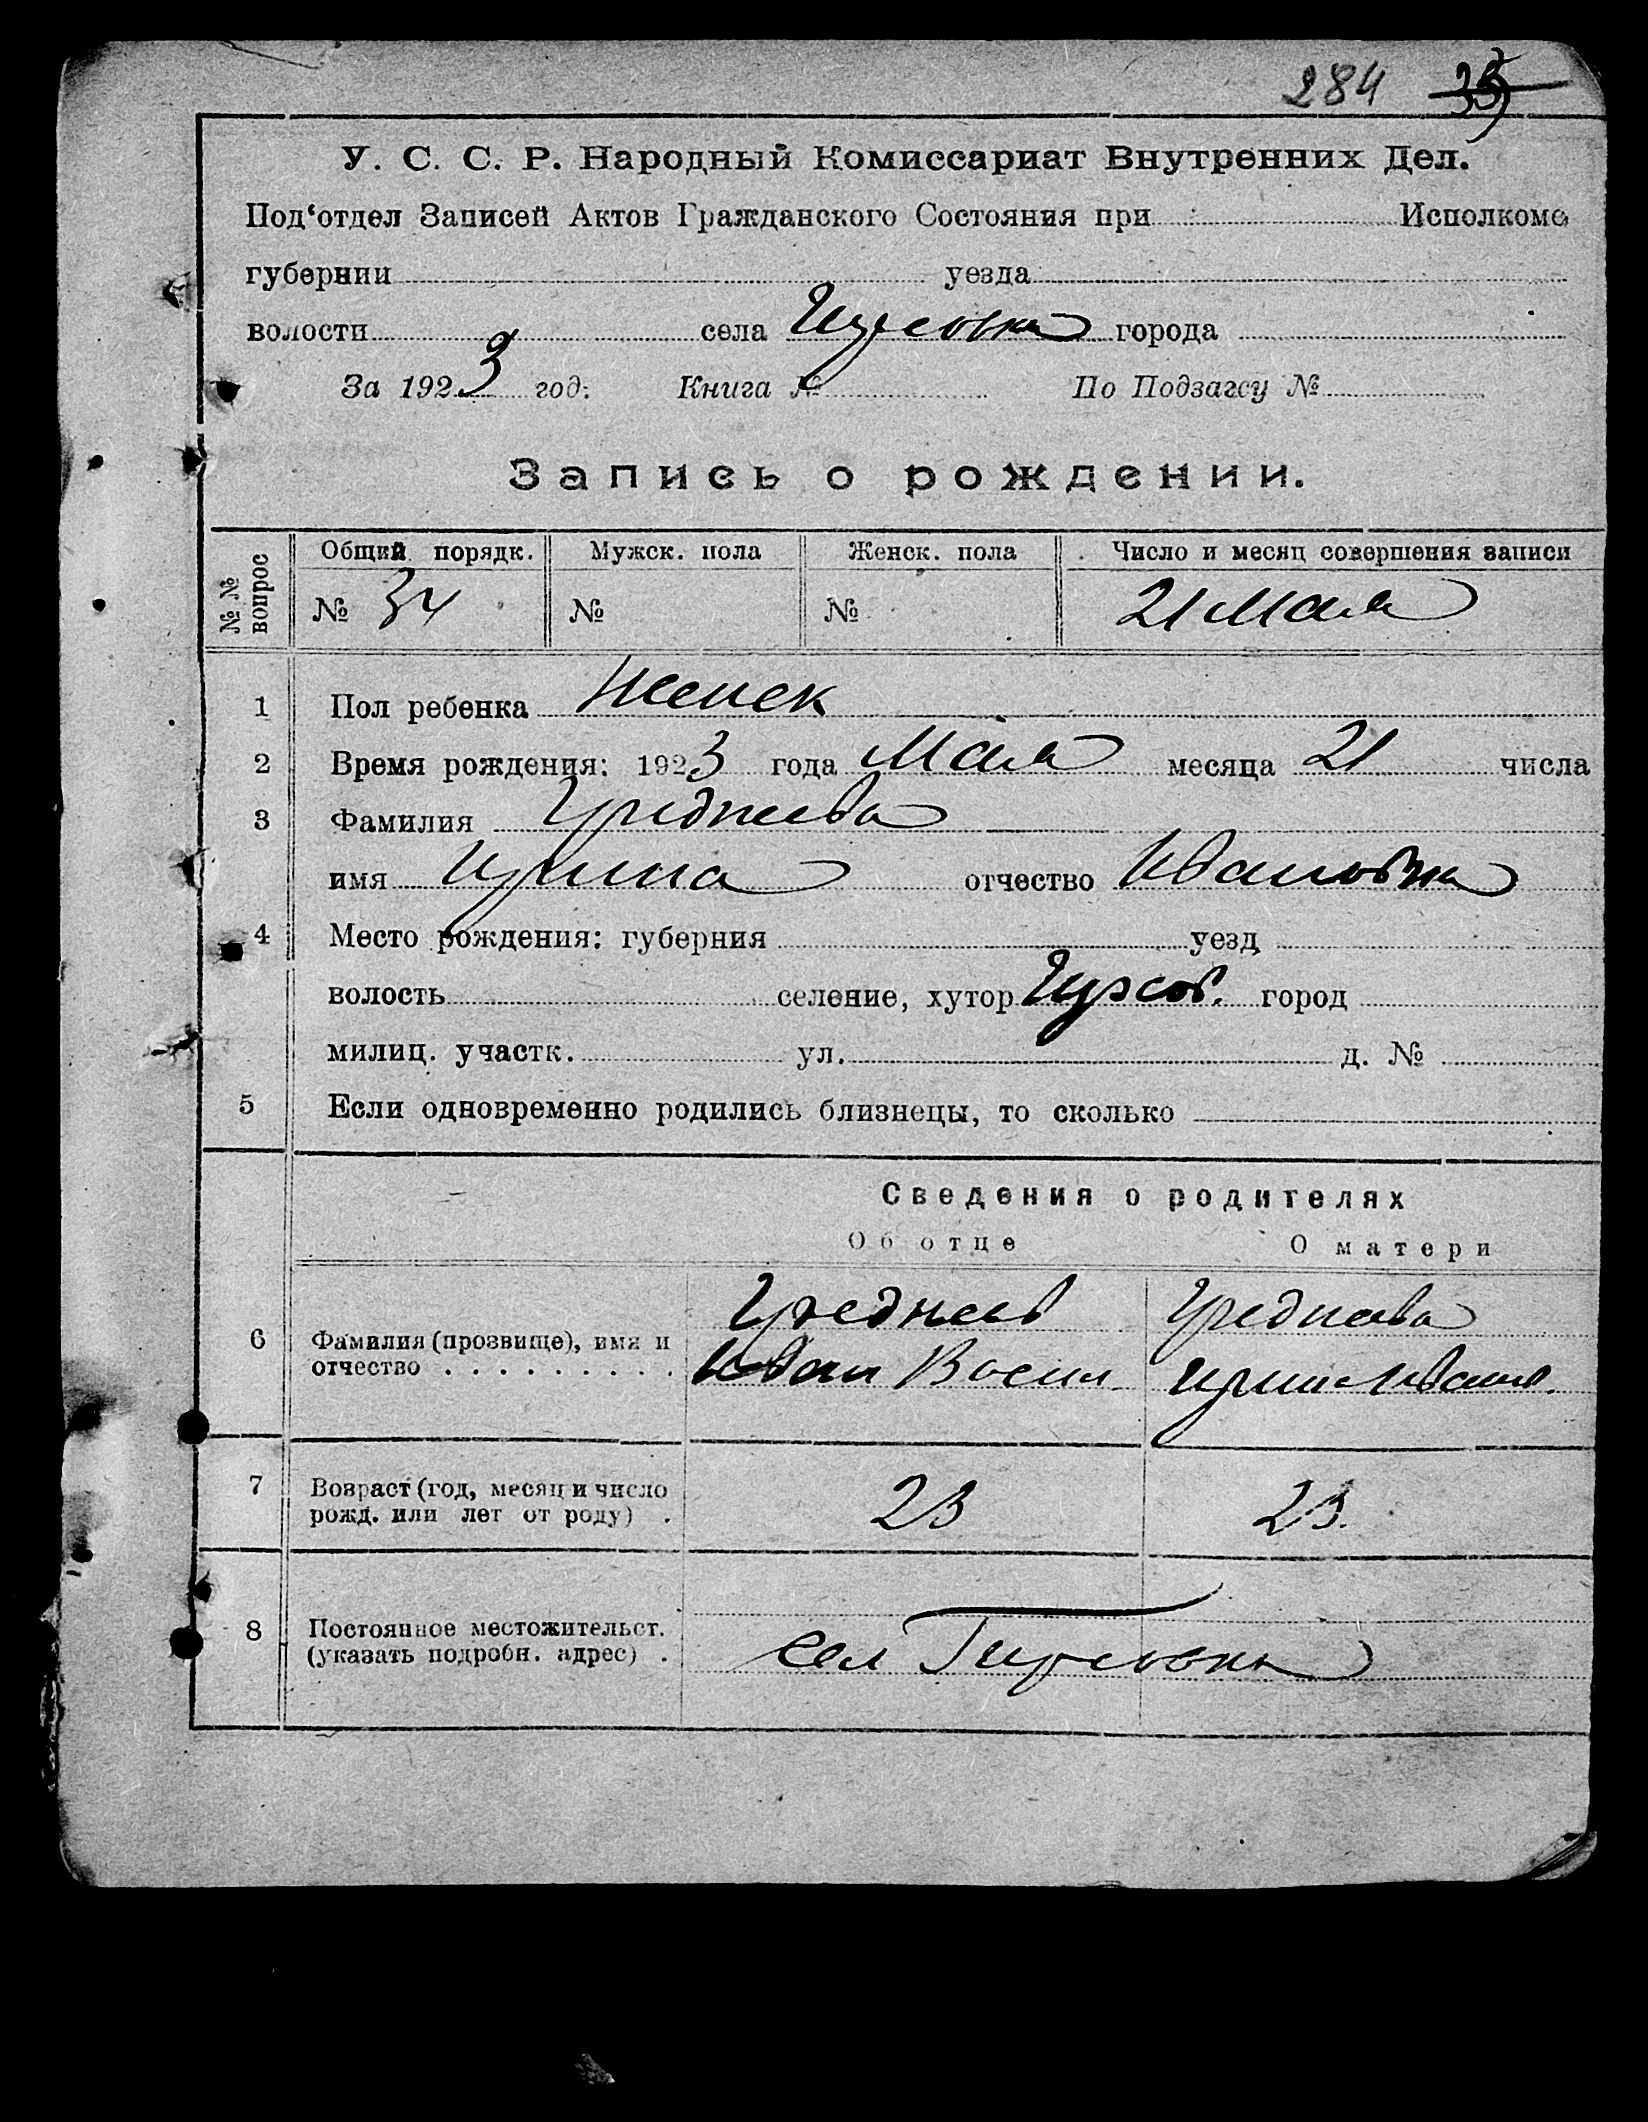 284 35
У. С. С. Р. Народный Комиссариат Внутренних Дел.
Под‘отдел Записей Актов Гражданского Состояния при Исполкоме
губернии уезда
волости села города
За 1923 год: Книга № По Подзагсу №
Запись о рождении.
№ № вопрос
Общий порядк. Мужск. пола Женск. пола Число и месяц совершения записи
№ 34 № № 21 Мая
1 Пол ребенка Женск
2 Время рождения: 1923 года Мая месяца 21 числа
3 Фамилия
имя Ирина отчество Ивановна
4 Место рождения: губерния уезд
волость селение, хутор город
милиц. участк. ул. д. №
5 Если одновременно родились близнецы, то сколько
Сведения о родителях
Об отце О матери
6 Фамилия (прозвище), имя и
отчество Иван Васил. Ирина Иванов.
7 Возраст (год, месяц и число
рожд. или лет от роду) 23 23.
8 Постоянное местожительст.
(указать подробн. адрес) Сел